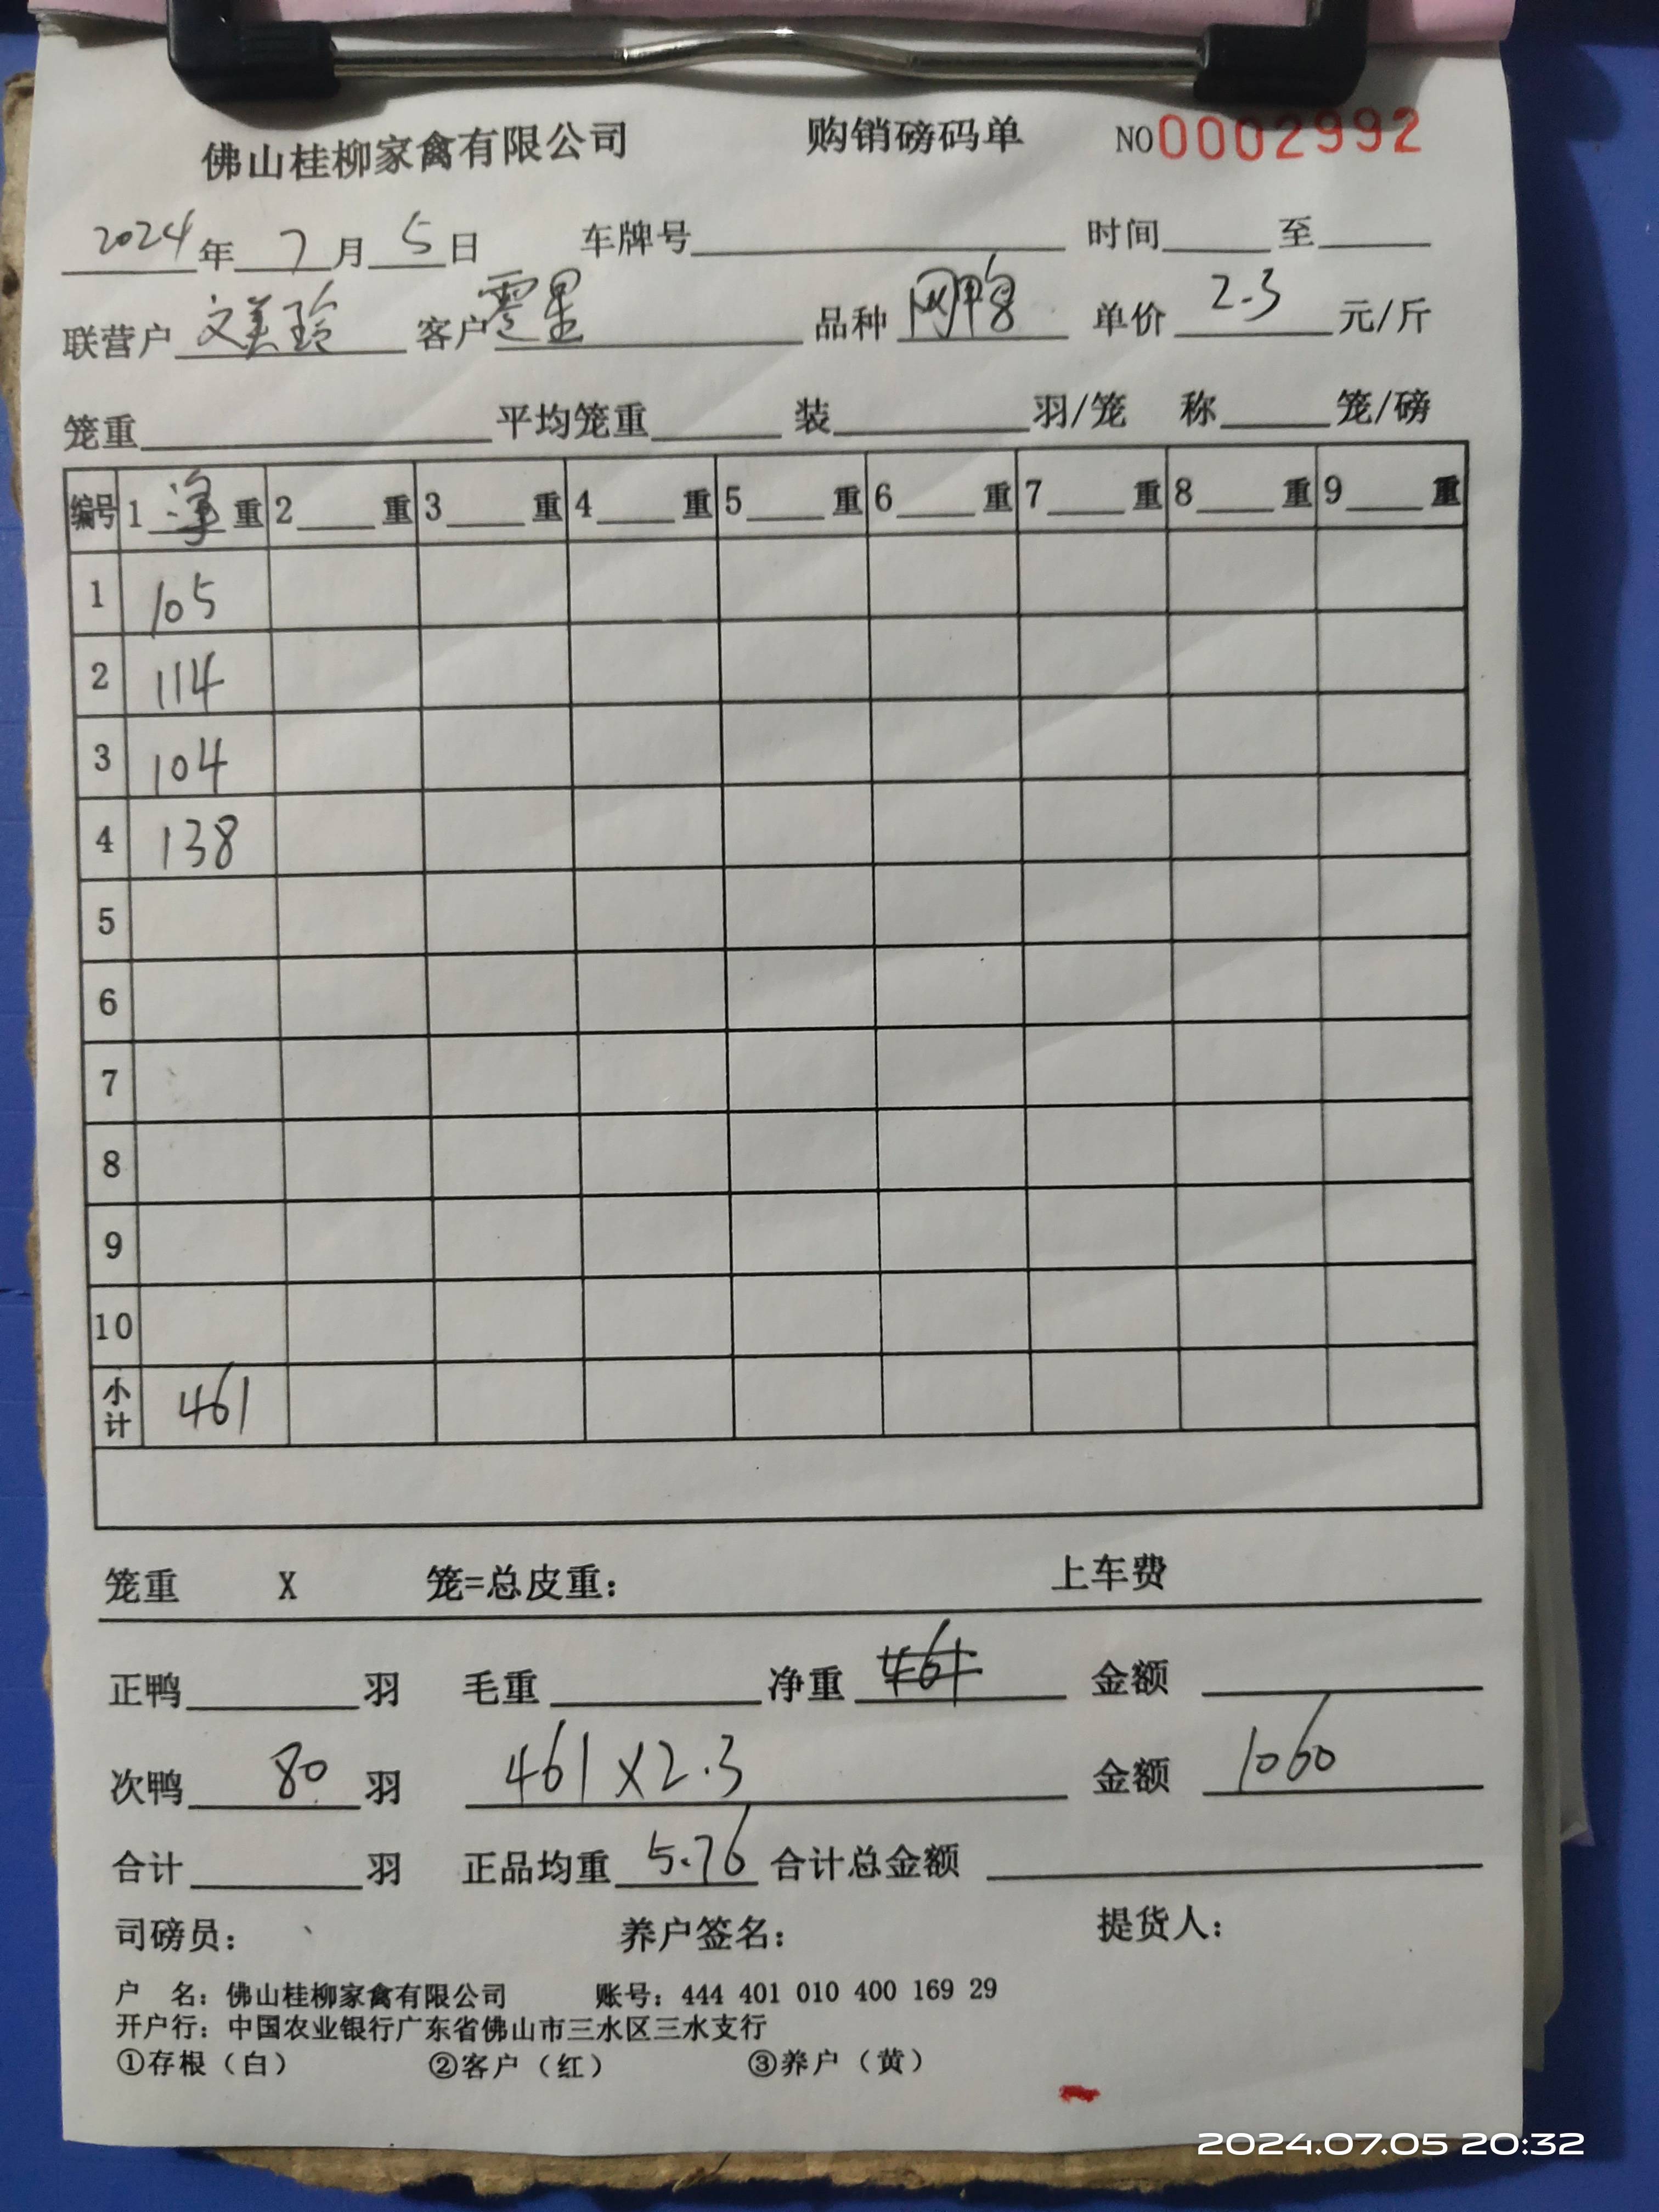 佛山桂柳家禽有限公司 购销磅码单 NO0002992
2024年 7月 5日 车牌号 时间 至
联营户 文美玲 客户 零星 品种 网鸭 单价 2.3 元/斤
笼重 平均笼重 装 羽/笼 称 笼/磅
编号 1 净 重 2 重 3 重 4 重 5 重 6 重 7 重 8 重 9 重
1 105
2 114
3 104
4 138
5
6
7
8
9
10
小计 461
笼重 X 笼=总皮重: 上车费
正鸭 羽 毛重 净重 461 金额
次鸭 80 羽 461×2.3 金额 1060
合计 羽 正品均重 5.76 合计总金额
司磅员: 养户签名: 提货人:
户 名: 佛山桂柳家禽有限公司 账号: 444 401 010 400 169 29
开户行: 中国农业银行广东省佛山市三水区三水支行
①存根(白) ②客户(红) ③养户(黄)
2024.07.05 20:32